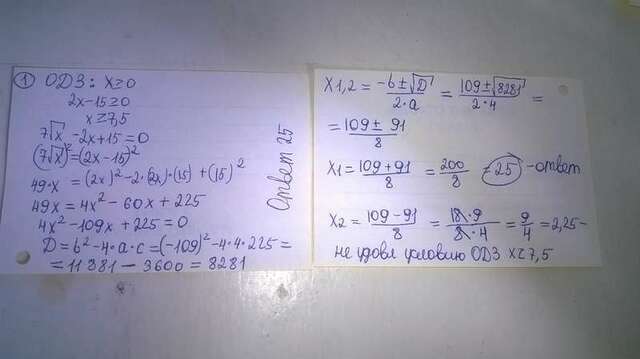 ① ОДЗ: x≥0
2x-15≥0
x≥7,5
7√x -2x+15=0
(7√x)²=(2x-15)²
49·x=(2x)²-2·(2x)·(15)+(15)²
49x=4x²-60x+225
4x²-109x+225=0
D=b²-4·a·c=(-109)²-4·4·225=
=11881-3600=8281
Ответ 25
X1,2=(-b±√D)/(2·a)=(109±√8281)/(2·4)=
=(109±91)/8
X1=(109+91)/8=200/8=25-ответ
X2=(109-91)/8=(18·9)/(8·4)=9/4=2,25-
не удовл условию ОДЗ x≥7,5